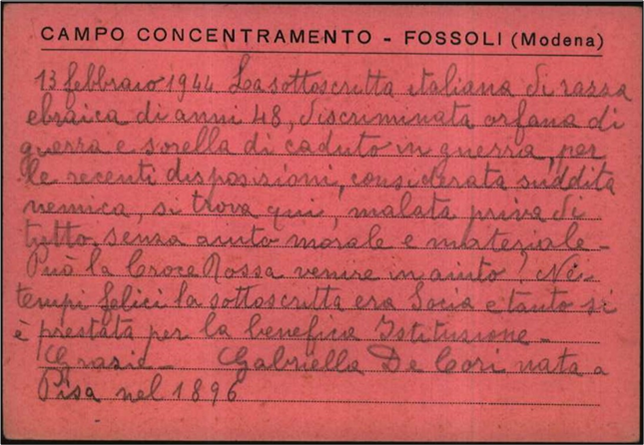 CAMPO CONCENTRAMENTO - FOSSOLI (Modena)
13 febbraio 1944 La sottoscritta italiana di razza
ebraica di anni 48, discriminata orfana di
guerra e sorella di caduto in guerra, per
le recenti disposizioni, considerata suddita
nemica, si trova qui, malata priva di
tutto, senza aiuto morale e materiale -
Può la Croce Rossa venire in aiuto? Nei
tempi felici la sottoscritta era Socia e tanto si
è prestata per la benefica Istituzione -
Grazie - Gabriella De Cori nata a
Pisa nel 1896